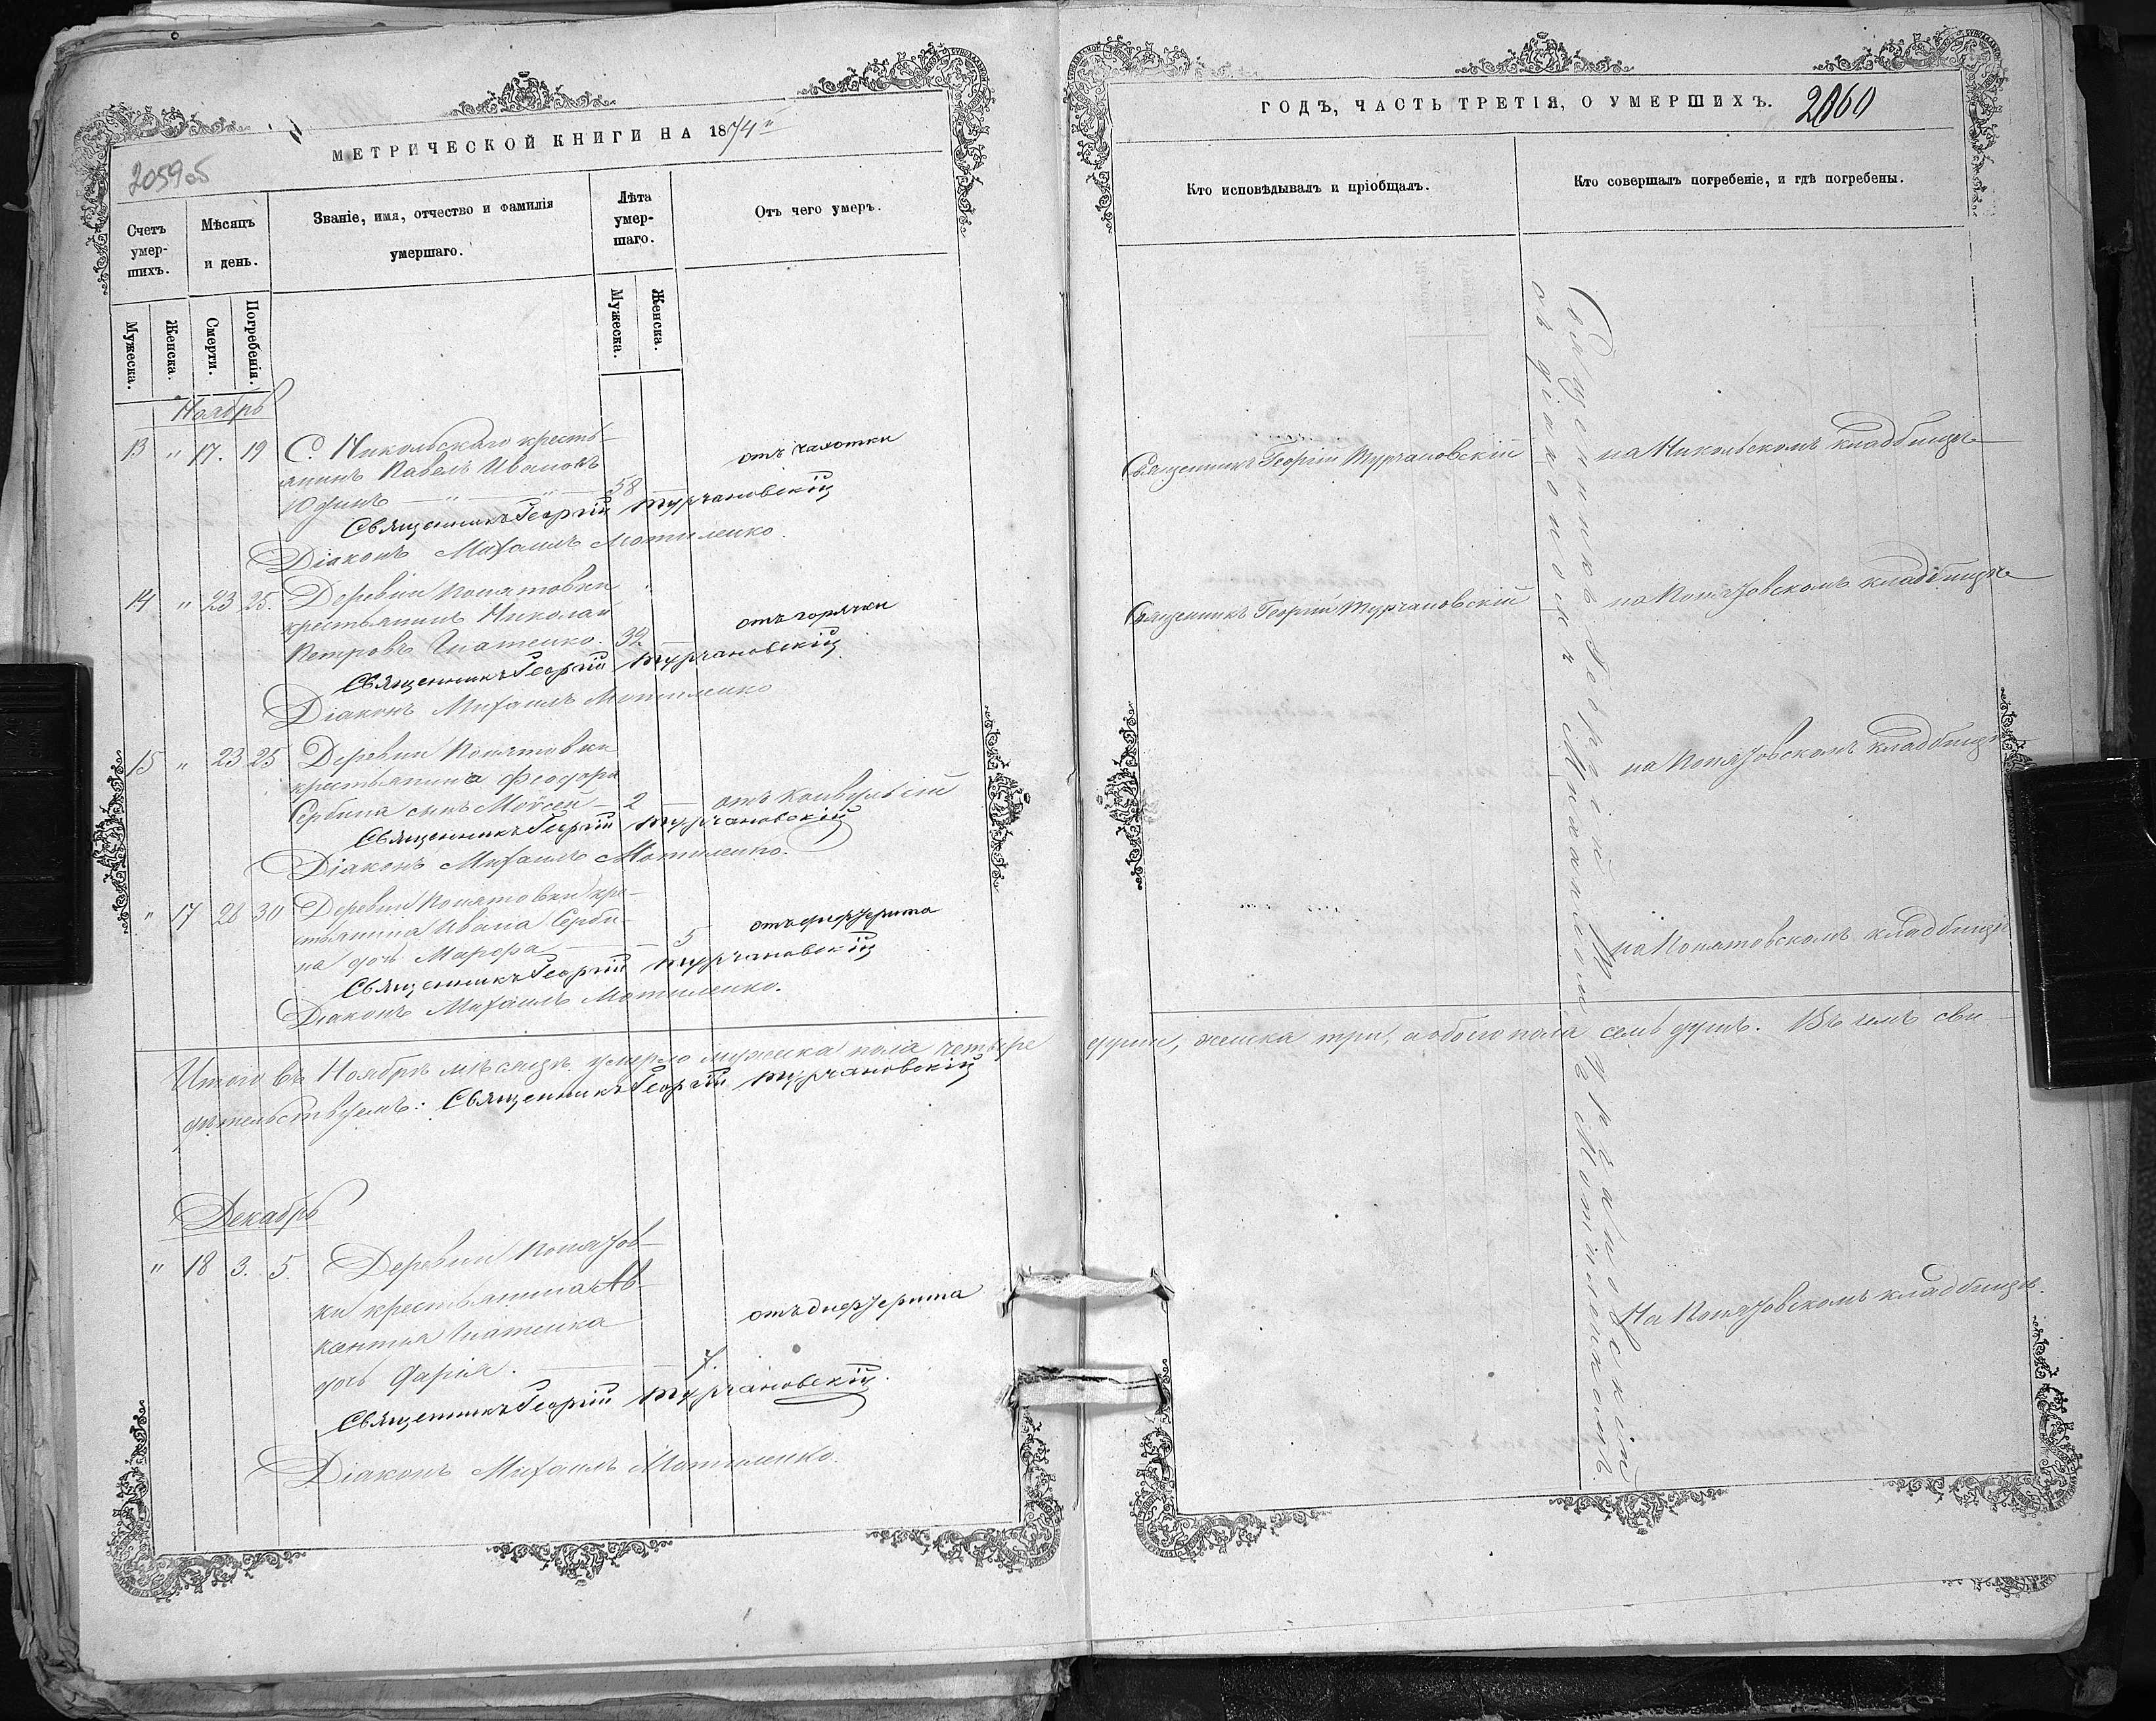 МЕТРИЧЕСКОЙ КНИГИ НА 1874
2059об
Счетъ умер-шихъ.
Мѣсяцъ и день.
Званіе, имя, отчество и фамилія умершаго.
Лѣта умер-шаго.
Отъ чего умеръ.
Мужеска.
Женска.
Смерти.
Погребенія.
Мужеска.
Женска.
Ноябрь
13 " 17. 19 С. Никольскаго кресть-
янинъ Павелъ Ивановъ отъ чахотки
Юдинъ 58
Священникъ Георгій Турчановскій
Діаконъ Михаилъ Мотиленко.
14 " 23 25. Деревни Понятовки
крестьянинъ Николай отъ горячки
Петровъ Игнатенко. 32
Священникъ Георгій Турчановскій
Діаконъ Михаилъ Мотиленко
15 " 23 25 Деревни Понятовки
крестьянина Феодора
Сербина сынъ Мойсей 2 отъ конвульсій
Священникъ Георгій Турчановскій
Діаконъ Михаилъ Мотиленко.
" 17 28 30 Деревни Понятовки кре-
стьянина Ивана Серби- отъ дифтерита
на дочь Марфа 5
Священникъ Георгій Турчановскій
Діаконъ Михаилъ Мотиленко.
Итого въ Ноябрѣ мѣсяцѣ умерло мужеска пола четыре
дѣтельствуемъ: Священникъ Георгій Турчановскій
Декабрь
" 18 3. 5. Деревни Понятов-
ки крестьянина
отъ дифтерита
дочь Дарія. 7.
Священникъ Георгій Турчановскій.
Діаконъ Михаилъ Мотиленко.
ГОДЪ, ЧАСТЬ ТРЕТІЯ, О УМЕРШИХЪ.
2060
Кто исповѣдывалъ и пріобщалъ.
Кто совершалъ погребеніе, и гдѣ погребены.
Священникъ Георгій Турчановскій
на Никольскомъ кладбищѣ
Священникъ Георгій Турчановскій
на Понятовскомъ кладбищѣ
на Понятовскомъ кладбищѣ
на Понятовскомъ кладбищѣ
души, женска три, а обоего пола семь душъ. Въ чемъ сви-
На Понятовскомъ кладбищѣ.
Священникъ Георгій Турчановскій
съ діакономъ Михаиломъ Мотиленкомъ.